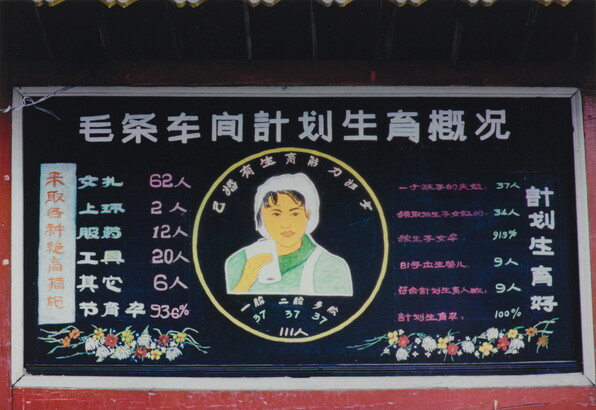 毛条车间計划生育概况
采取各种绝育措施
女扎 62人
上环 2人
服药 12人
工具 20人
其它 6人
节育率 93.6%
已婚有生育能力妇女
一胎 二胎 多胎
37 37 37
111人
一个孩子的夫妇: 37人
領取独生子女証的: 34人
独生子女率: 91.9%
81年出生婴儿: 9人
符合計划生育人数: 9人
計划生育率: 100%
計划生育好